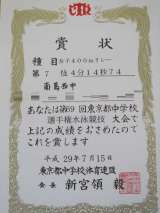 賞状
種目 女子400mリレー
第7位 4分14秒74
南葛西中
あなたは第69回東京都中学校
選手権水泳競技大会で
上記の成績をおさめたので
これを賞します
平成29年7月15日
東京都中学校体育連盟
会長 新宮領 毅